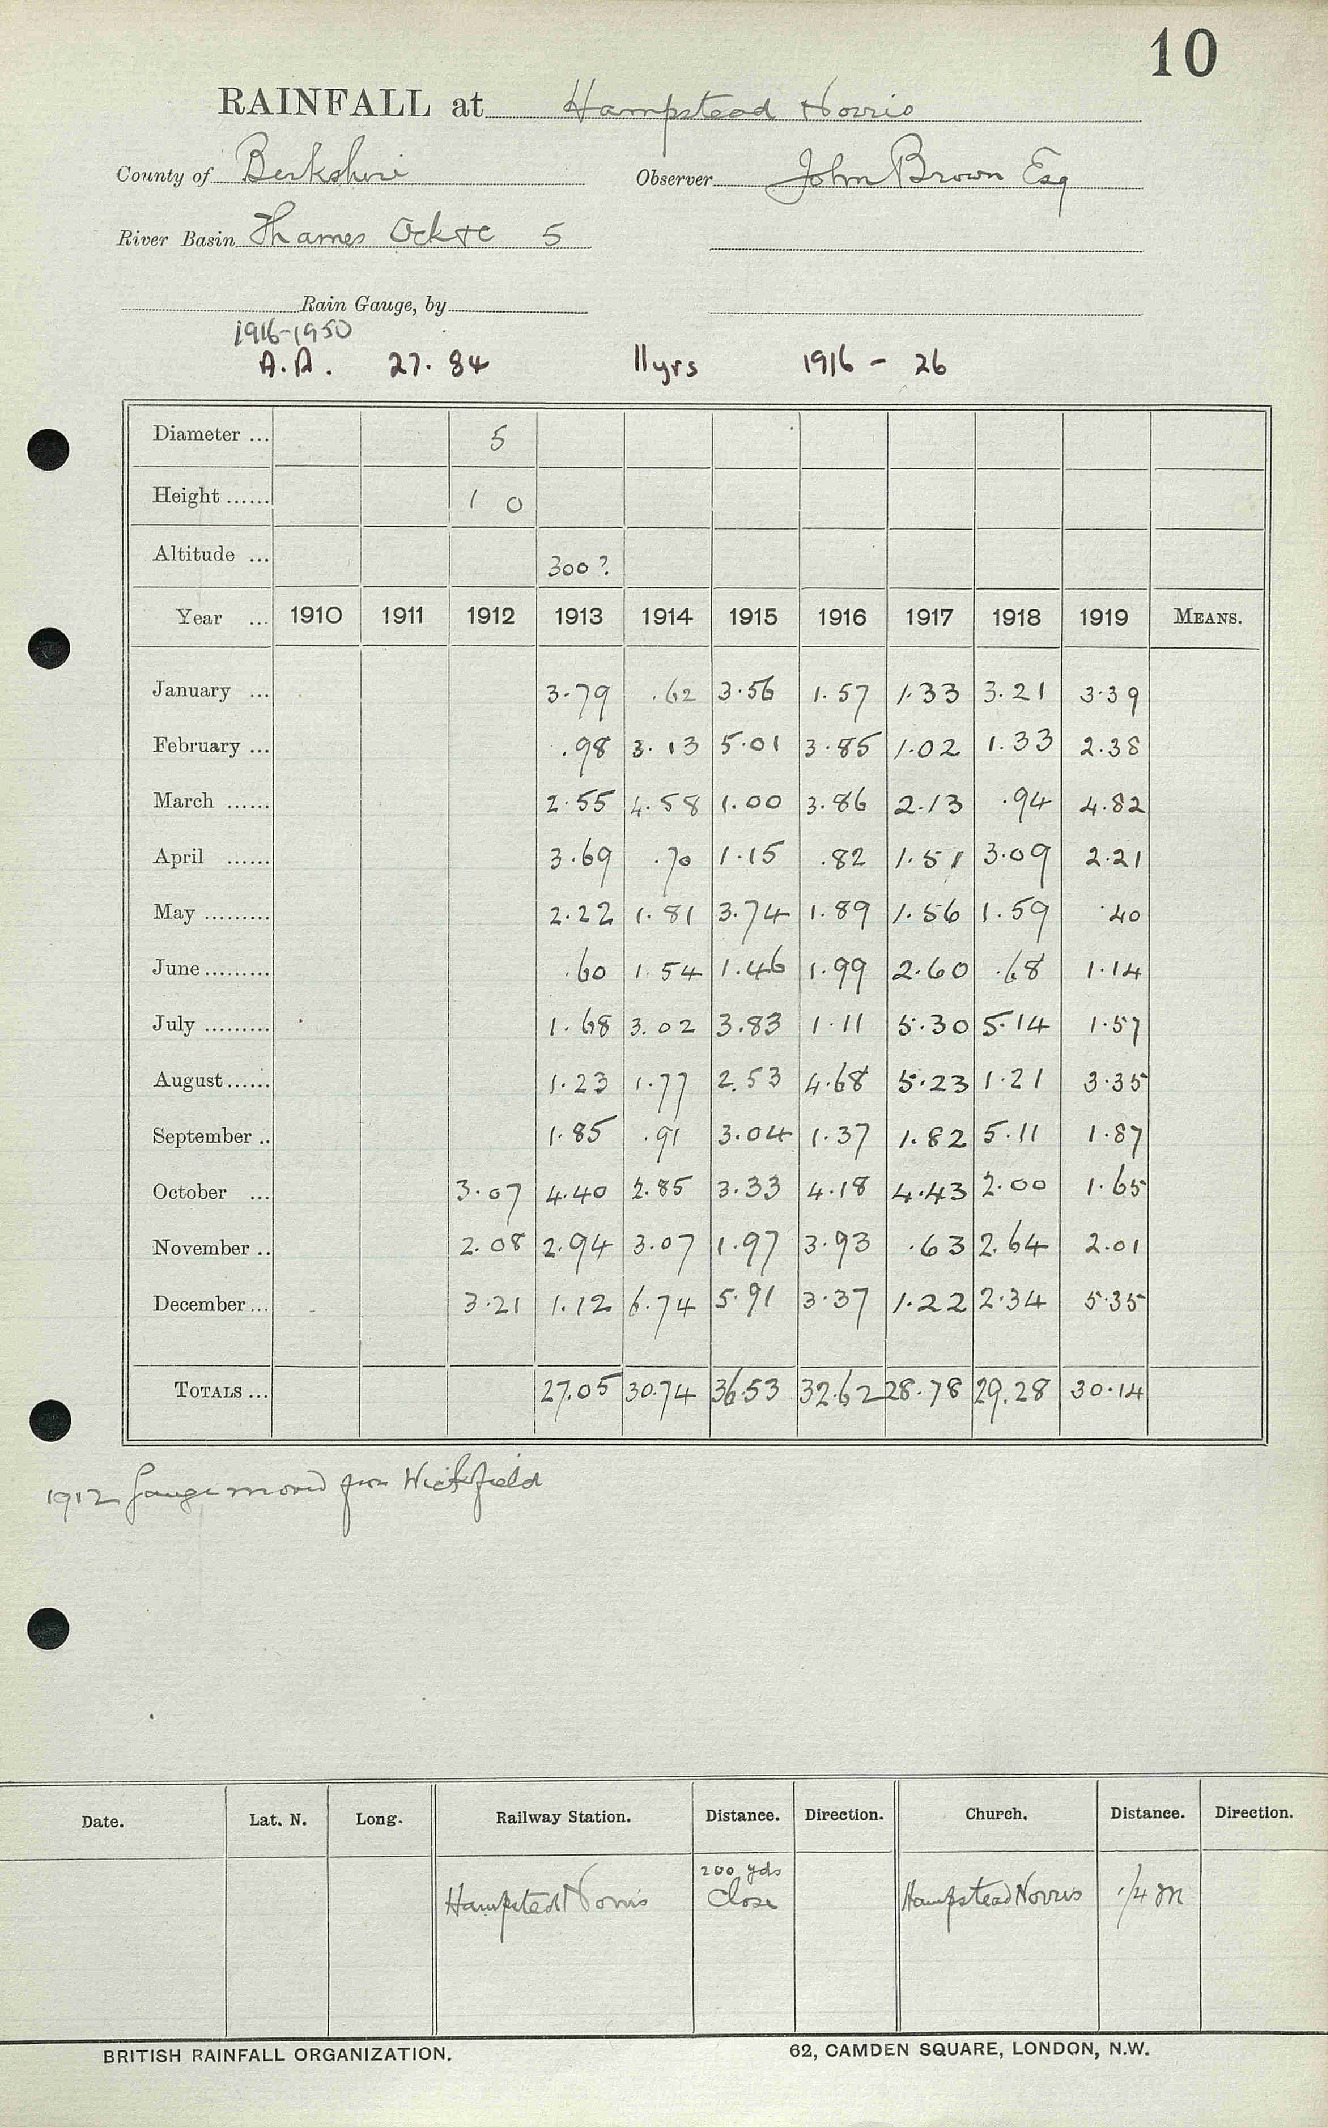 10
RAINFALL at Hampstead Norris
County of Berkshire Observer John Brown Esq
River Basin Thames Ock &c 5
Rain Gauge, by
1916-1950
A.A. 27.84 11 yrs 1916 - 26
Diameter ... 5
Height ...... 1 0
Altitude ... 300?
Year ... 1910 1911 1912 1913 1914 1915 1916 1917 1918 1919 MEANS.
January ... 3.79 .62 3.56 1.57 1.33 3.21 3.39
February ... .98 3.13 5.01 3.85 1.02 1.33 2.38
March ...... 2.55 4.58 1.00 3.86 2.13 .94 4.82
April ...... 3.69 .70 1.15 .82 1.51 3.09 2.21
May ......... 2.22 1.81 3.74 1.89 1.56 1.59 .40
June ......... .60 1.54 1.46 1.99 2.60 .68 1.14
July ......... 1.68 3.02 3.83 1.11 5.30 5.14 1.57
August ...... 1.23 1.77 2.53 4.68 5.23 1.21 3.35
September .. 1.85 .91 3.04 1.37 1.82 5.11 1.87
October ... 3.07 4.40 2.85 3.33 4.18 4.43 2.00 1.65
November .. 2.08 2.94 3.07 1.97 3.93 .63 2.64 2.01
December ... 3.21 1.12 6.74 5.91 3.37 1.22 2.34 5.35
TOTALS ... 27.05 30.74 36.53 32.62 28.78 29.28 30.14
1912 Gauge moved from Wickfield
Date. Lat. N. Long. Railway Station. Distance. Direction. Church. Distance. Direction.
200 yds
Hampstead Norris Close Hampstead Norris 1/4 m
BRITISH RAINFALL ORGANIZATION. 62, CAMDEN SQUARE, LONDON, N.W.